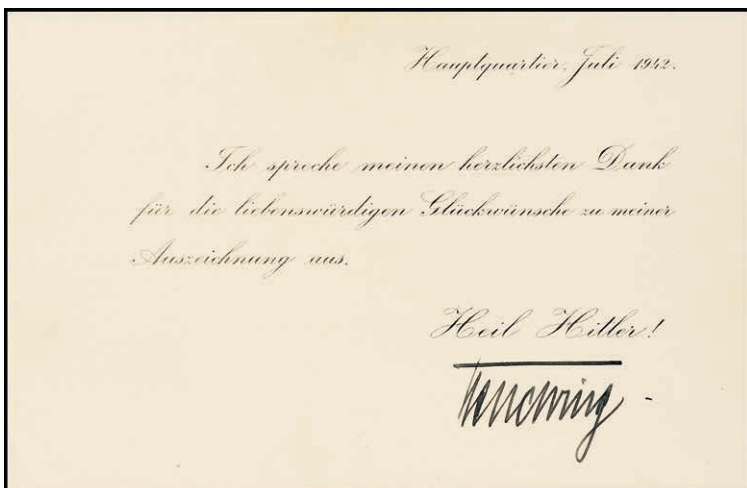 Hauptquartier, Juli 1942.
Ich spreche meinen herzlichsten Dank
für die liebenswürdigen Glückwünsche zu meiner
Auszeichnung aus.
Heil Hitler!